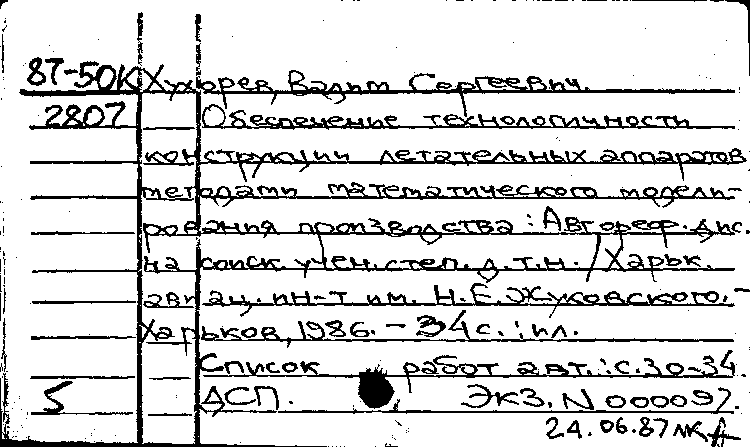 87-50К Хухорев, Вадим Сергеевич.
2807 Обеспечение технологичности
конструкции летательных аппаратов
методами математического модели-
рования производства : Автореф. дис.
на соиск. учен. степ. д. т. н. / Харьк.
авиац. ин-т им. Н. Е. Жуковского. -
Харьков, 1986. - 34 с. : ил.
Список работ авт. : с. 30-34.
5 ДСП. Экз. N 000097.
24.06.87